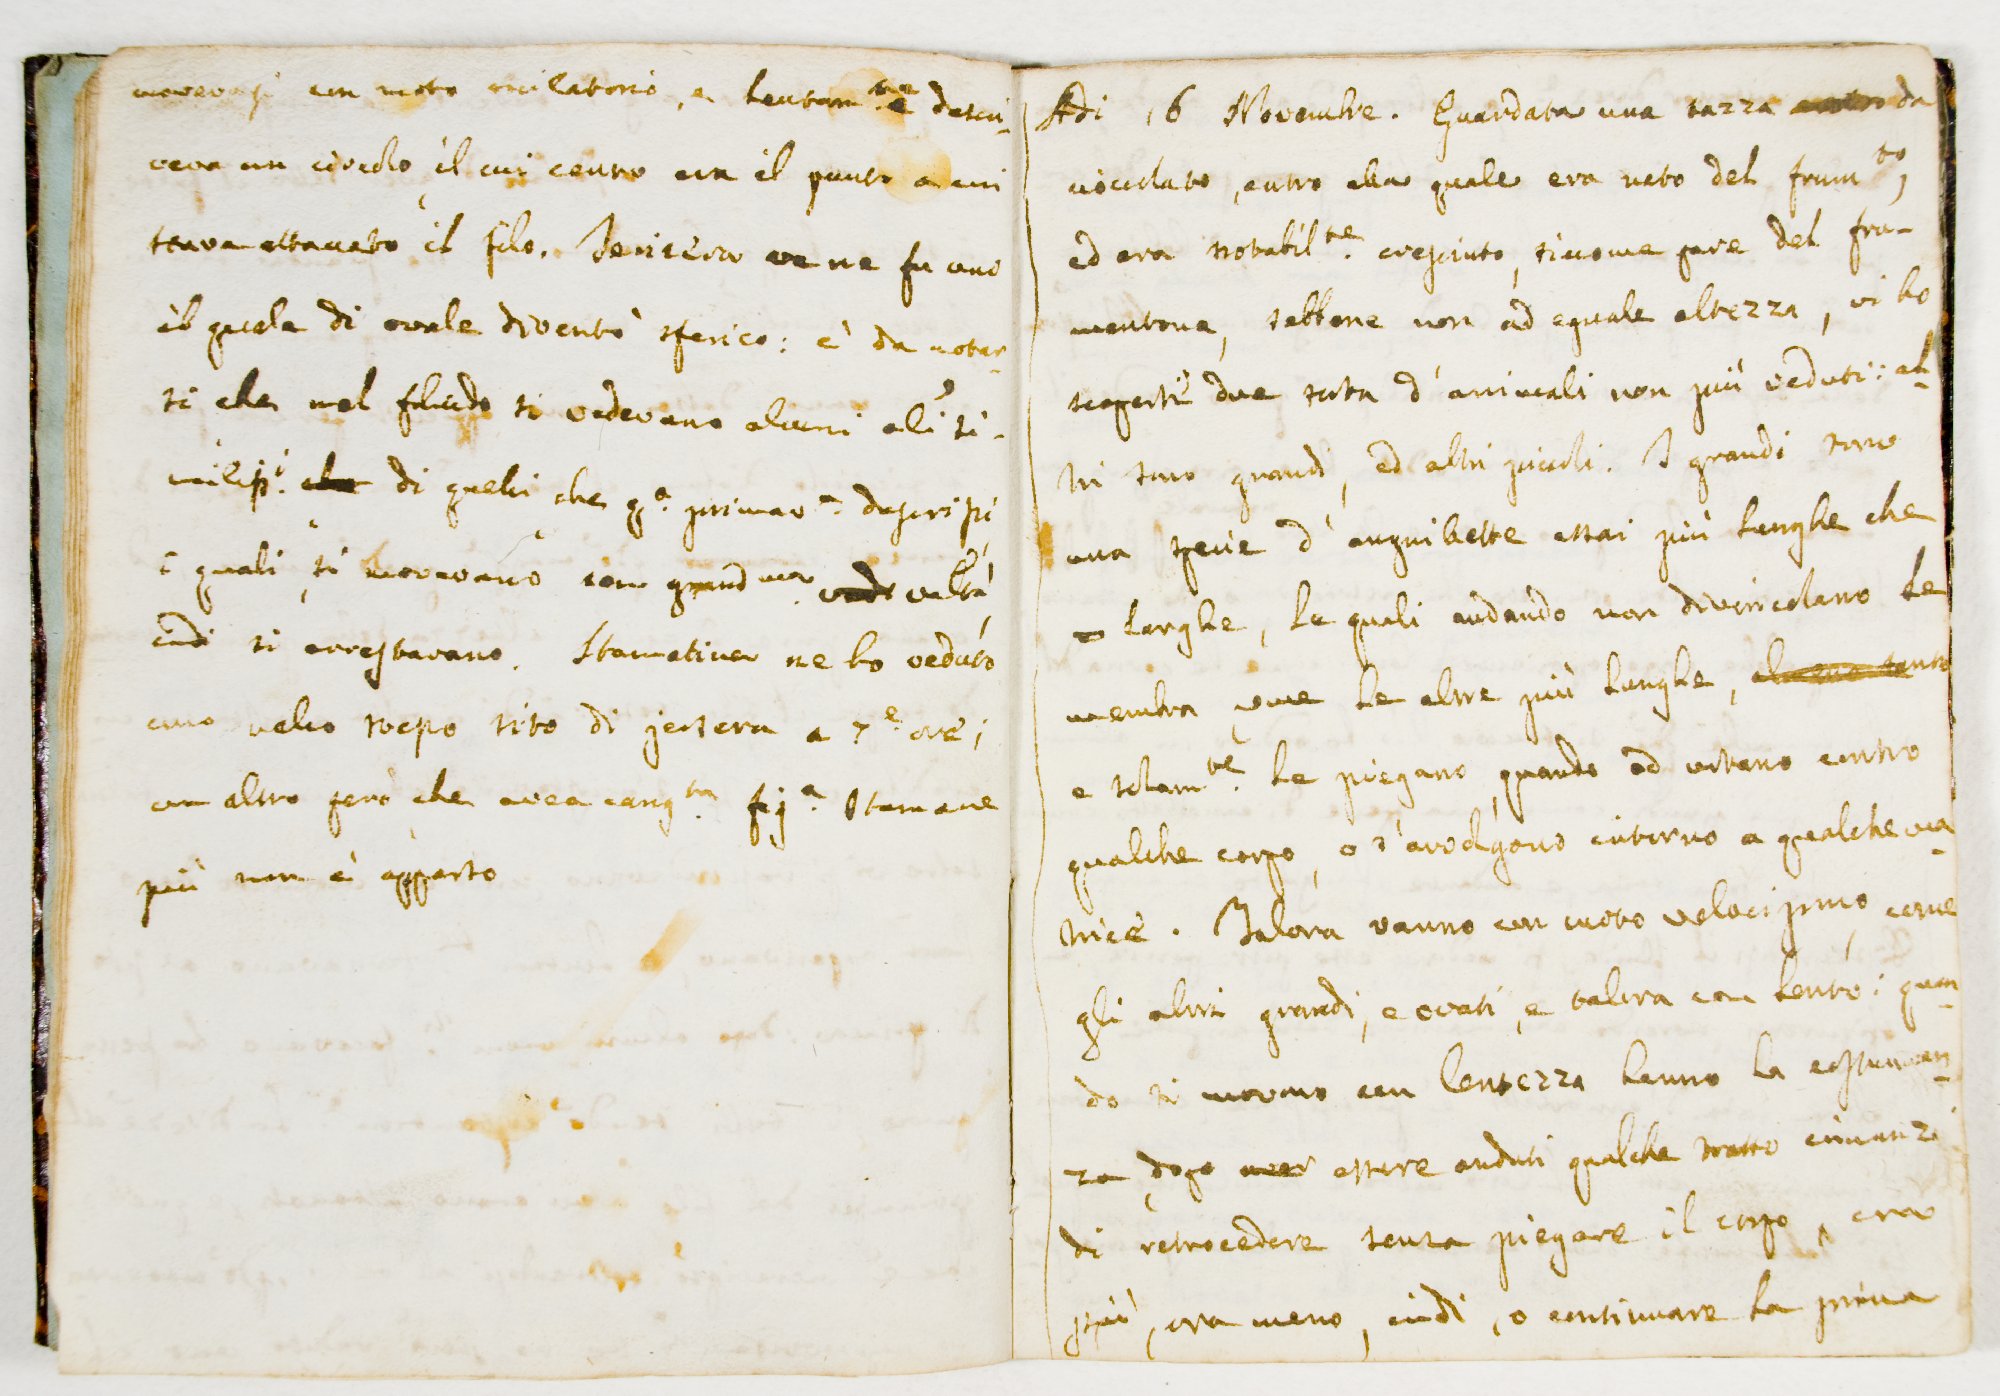 movevasi con moto oscilatorio, e lentam.te descri-
veva un circolo, il cui centro era il punto a cui
stava attaccato il filo. Jerisera ve ne fu uno
il quale di ovale diventò sferico: è da notar-
si che nel fluido si vedevano alcuni ali si-
miliss.i di quelli che q.a primav.a descrissi,
i quali si movevano con grand.ma velità
indi si arrestavano. Stamatina ne ho veduto
uno nello stesso sito di jersera a 7.e ore;
un altro però che avea cang.ta fig.a stamane
più non è apparso
Adi 16 Novembre. Guardata una tazza da
ciocolato, entro alla quale era nato del frum.to,
ed era notabil.te cresciuto, siccome pure del fru-
mentone, sebbene non ad eguale altezza, vi ho
scoperti due sorta d'animali non più veduti: al-
tri sono grandi, ed altri piccoli. I grandi sono
una specie d'anguillette assai più lunghe che
larghe, le quali andando non divincolano le
membra come le altre più lunghe, almeno tanto
e solam.te le piegano quando od urtano contro
qualche corpo, o s'avvolgono intorno a qualche ma-
trice. Talora vanno con moto velocissimo, come
gli altri grandi, e ovati, e talora con lento: quan-
do si movono con lentezza hanno la costuman-
za dopo aver essere andati qualche tratto innanzi
di retrocedere senza piegare il corpo, ora
più, ora meno, indi, o continuare la prima